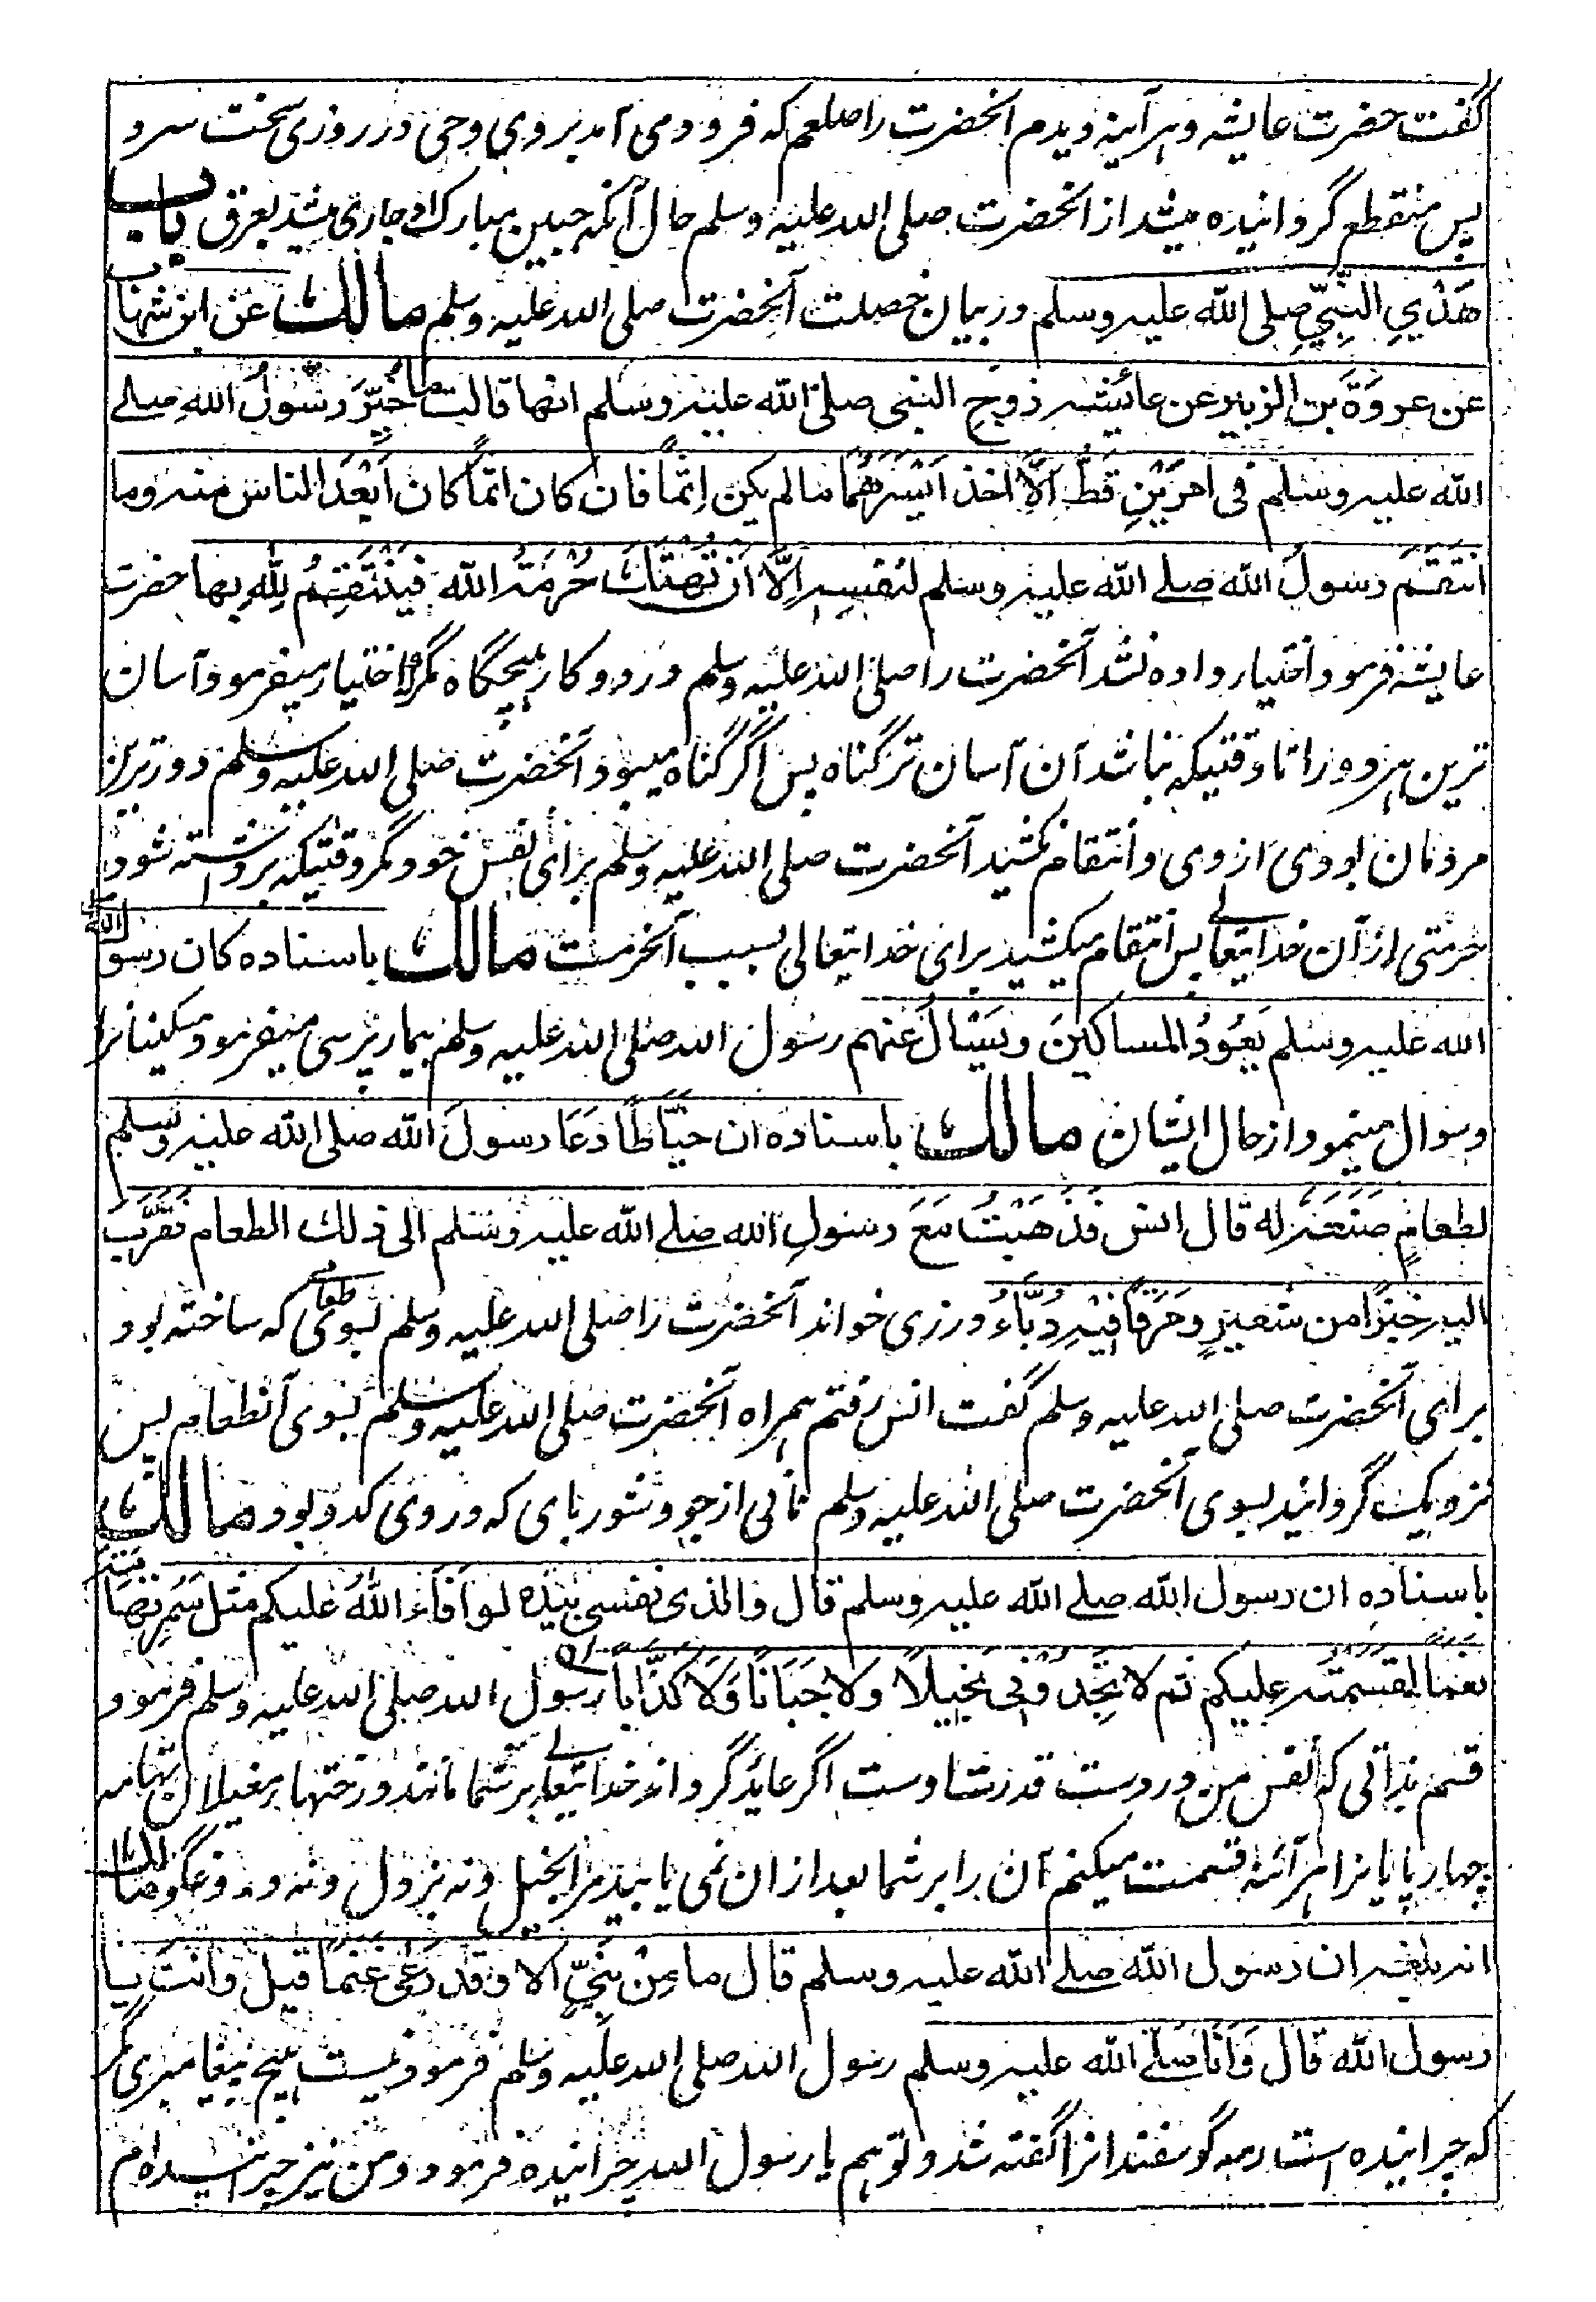 گفت حضرت عایشه و هرآینه دیدم آنحضرت را صلعم که فرود می آمد بروی وحی در روزی سخت سرد
پس منقطع گردانیده میشد از آنحضرت صلی الله علیه وسلم حال آنکه جبین مبارک او جاری میشد بعرق باب
هَدْيِ النَّبِيِّ صلى الله عليه وسلم در بیان خصلت آنحضرت صلی الله علیه وسلم مالك عن ابن شهاب
عن عروة بن الزبير عن عائشة زوج النبي صلى الله عليه وسلم انها قالت ما خُيِّرَ رسولُ اللهِ صلے
الله عليه وسلم في امرَيْنِ قَطُّ اِلَّا اَخذ اَيْسَرَهُمَا ما لم يكن اِثمًا فان كان اثمًا كان اَبْعَدَ الناس منه وما
انتقَمَ رسولُ الله صلے الله عليه وسلم لنفسِهِ اِلَّا اَنْ تُهْتَكَ حُرْمَةُ الله فَيَنْتَقِمُ لِلّٰهِ بها حضرت
عایشه فرمود اختیار داده نشد آنحضرت را صلی الله علیه وسلم در دو کار هیچگاه مگر اختیار میفرمود آسان
ترین هر دو را تا وقتیکه نباشد آن آسان تر گناه پس اگر گناه میبود آنحضرت صلی الله علیه وسلم دورترین
مردمان بودی از وی و انتقام نکشید آنحضرت صلی الله علیه وسلم برای نفس خود مگر وقتیکه برداشته شود
حرمتی از آن خدایتعالے پس انتقام میکشید برای خدایتعالی بسبب آنحرمت مالك باسناده كان رسول
الله عليه وسلم يَعُوْدُ المساكينَ ويَسْئَالُ عنهم رسول الله صلی الله علیه وسلم بیمار پرسی میفرمود مسکینانرا
وسوال مینمود از حال ایشان مالك باسناده ان خَيَّاطًا دَعَا رسولَ الله صلى الله عليه وسلم
لطعامٍ صَنَعَهُ له قال انس فَذَهَبْتُ مَعَ رسولِ الله صلے الله عليه وسلم الى ذلك الطعام فَقَرَّبَ
اليه خبزًا من شعيرٍ وَمَرَقًا فيه دُبَّاءُ درزی خواند آنحضرت را صلی الله علیه وسلم بسوی طعامے که ساخته بود
برای آنحضرت صلی الله علیه وسلم گفت انس رفتم همراه آنحضرت صلی الله علیه وسلم بسوی آنطعام پس
نزدیک گردانید بسوی آنحضرت صلی الله علیه وسلم نانی از جو و شوربای که در وی کدو بود مالك
باسناده ان رسول الله صلے الله عليه وسلم قال والذى نفسى بيده لو اَفَاءَ اللهُ عليكم مثل سَمُرِ تِهَامَةَ
نَعَمًا لقسَمْتُه عليكم ثم لا تَجِدُوْنِي بخيلًا ولا جَبَانًا وَلَا كَذَّابًا رسول الله صلی الله علیه وسلم فرمود
قسم بذاتی که نفس من در دست قدرت اوست اگر عاید گرداند خدایتعالے بر شما مانند درختها مغیلان تهامه
چهارپایانرا هرآئنه قسمت میکنم آن را بر شما بعد از ان نمی یابید مرا بخیل و نه بزدل و نه دروغگو مالك
انه بلغه ان رسول الله صلے الله عليه وسلم قال ما مِنْ نَبِيٍّ الا وقد رَعَى غَنَمًا قيل وانتَ يا
رسول الله قال وَاَنَا صلے الله عليه وسلم رسول الله صلی الله علیه وسلم فرمود نیست هیچ پیغامبری مگر
که چرانیده است رمه گوسفندانرا گفته شد و تو هم یا رسول الله چرانیده فرمود و من نیز چرانیده ام